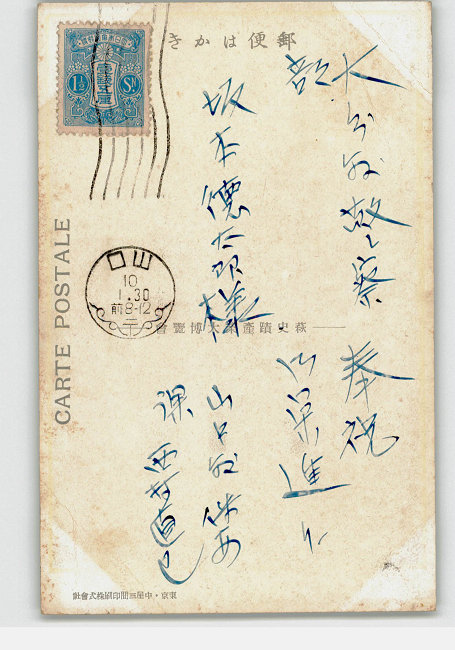 郵便はかき
壹錢五厘
1½ Sn
CARTE POSTALE
大分縣警察
部
坂本德太郎様
山口
10
1.30
前8-12
萩史蹟產業大博覽會
奉祝
御栄進
山口縣保安
課 西村直己
印刷株式會社